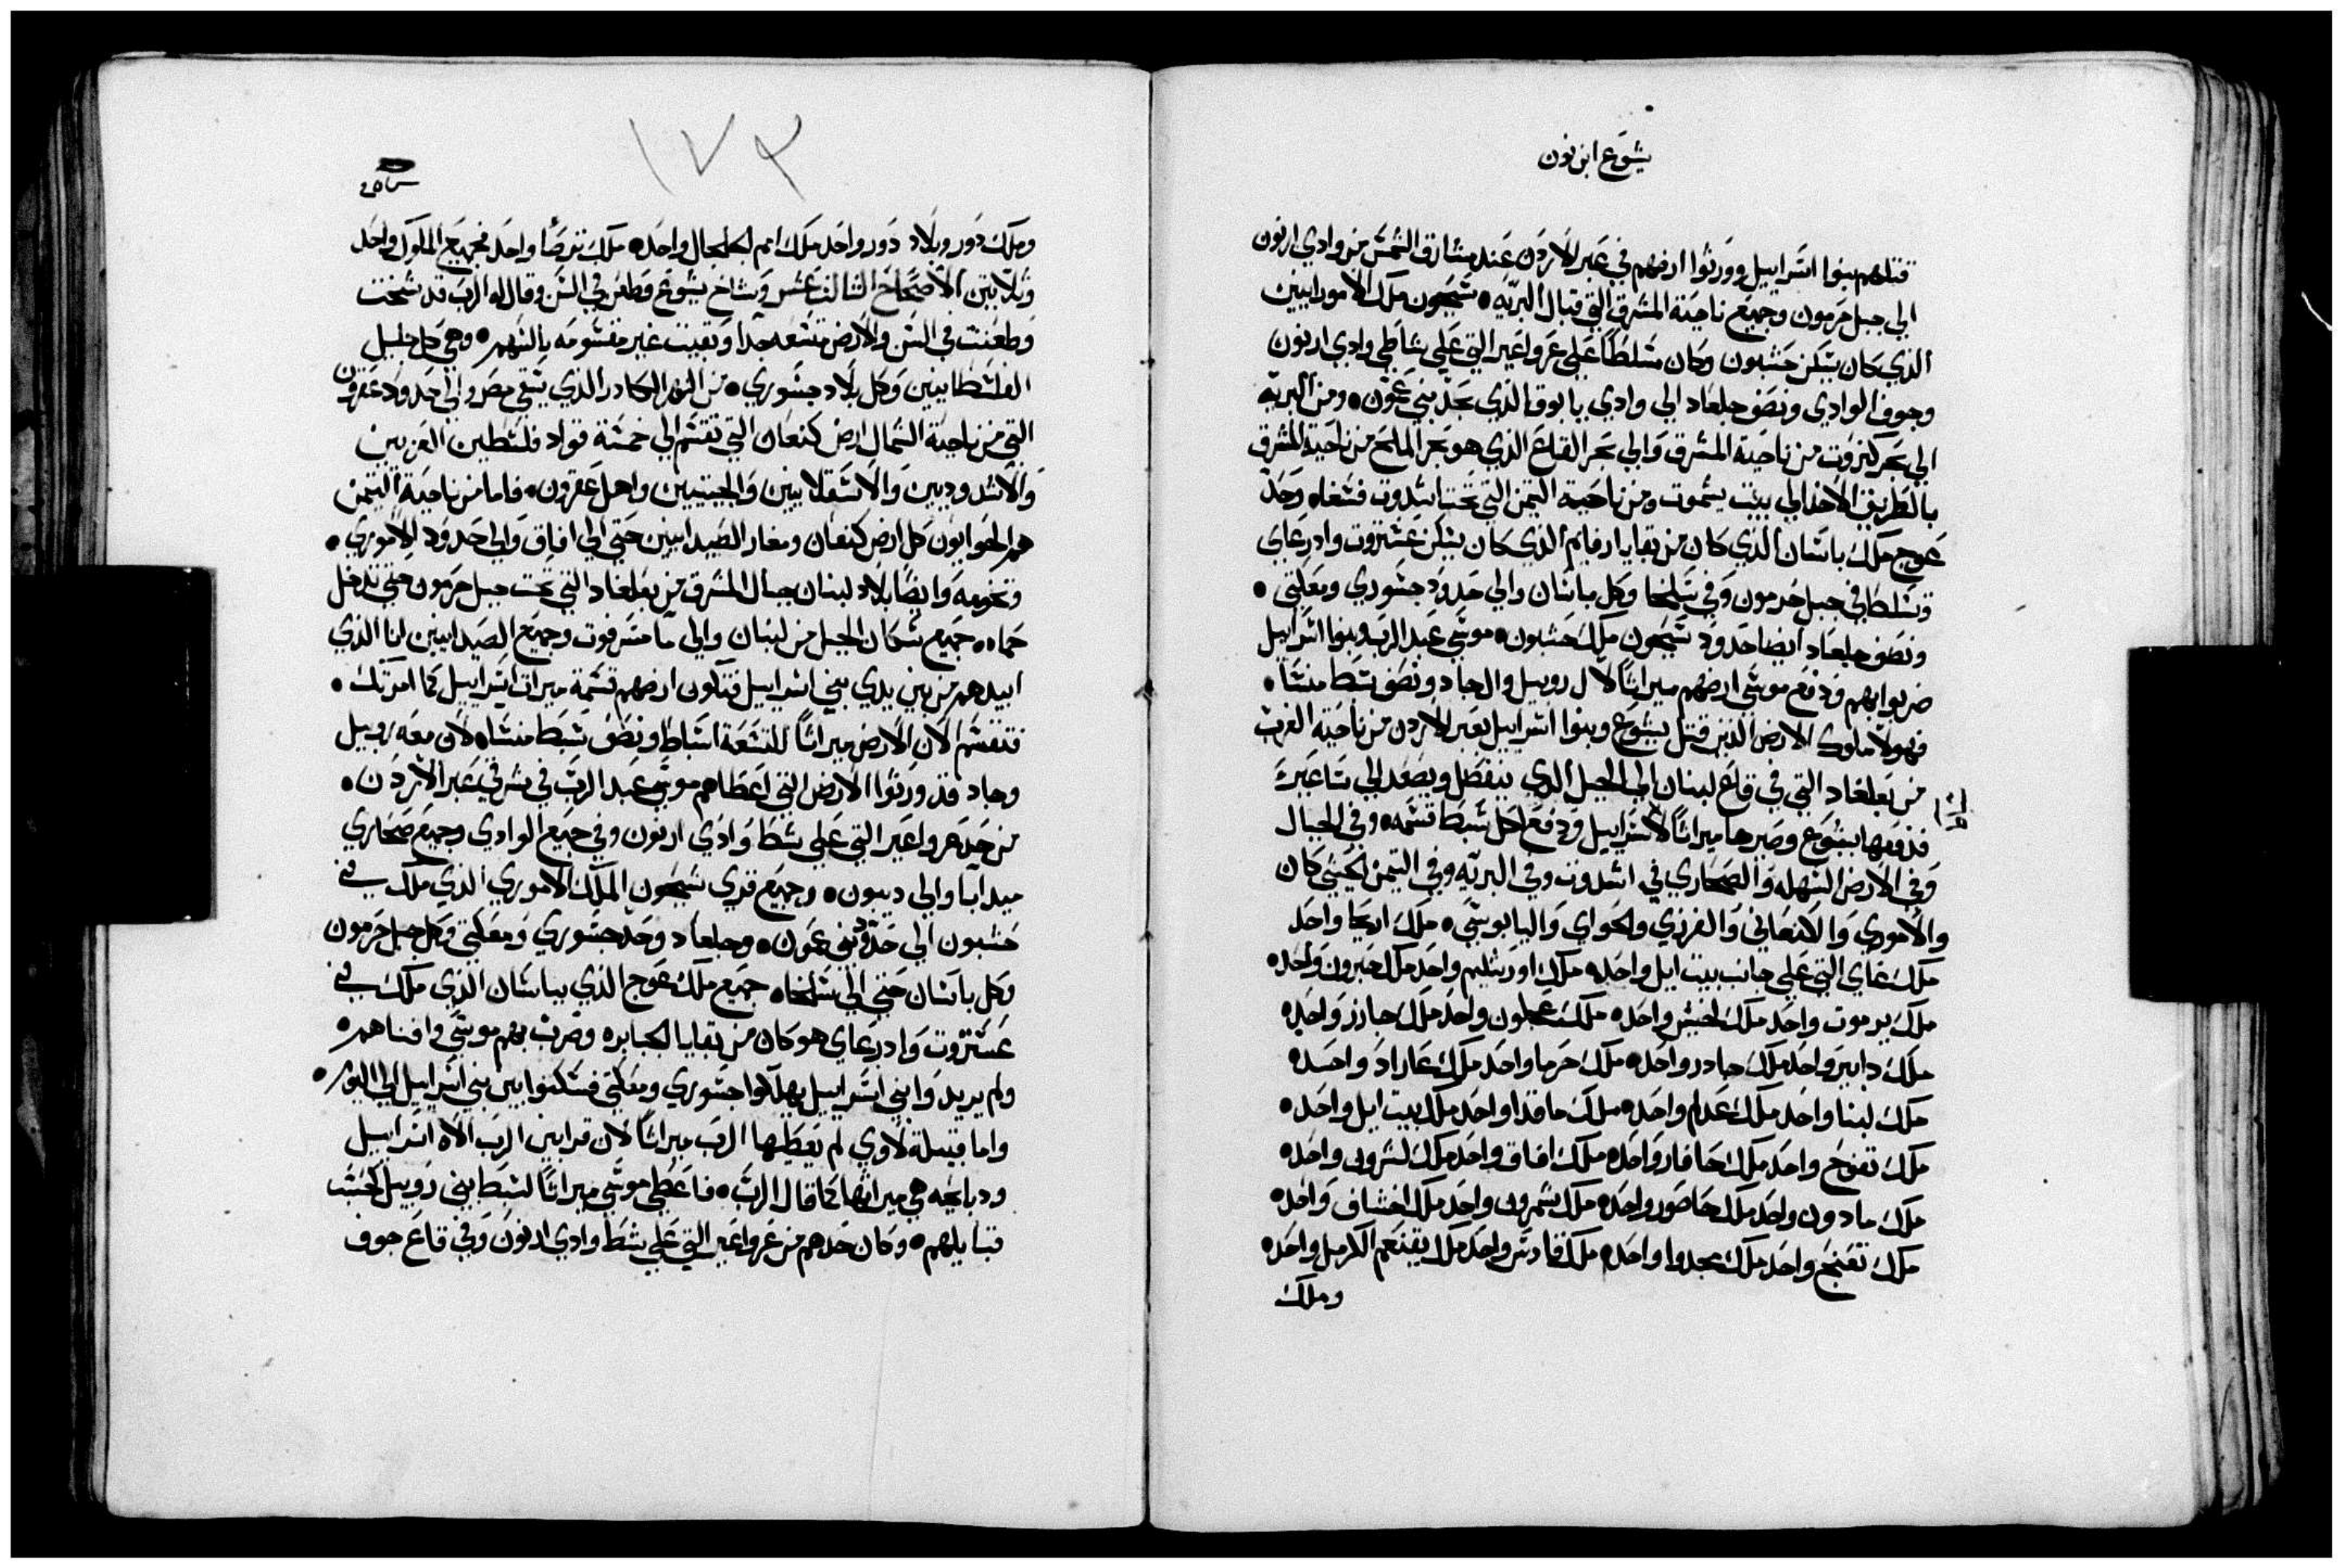 يشوع ابن نون
قتلهم بنوا اسراييل وورثوا ارضهم في عبر الاردن عند مشارق الشمس من وادي ارنون
الي جبل حرمون وجميع ناحية المشرق التي قبال البريه • سيحون ملك الامورانيين
الذي كان يسكن حشبون وكان مسلطا علي عرواعير التي علي شاطي وادي ارنون
وجوف الوادي ونصف جلعاد الي وادي يابوق الذي بحد بني عمون • ومن البريه
الي بحر كنروت من ناحية المشرق والي بحر القاع الذي هو بحر الملح من ناحية المشرق
بالطريق الاخذ الي بيت يشموت ومن ناحية التيمن التي تحت اشدوت فسغاه وحد
عوج ملك باسان الذي كان من بقايا ارفايم الذي كان يسكن عشتروت وادرعاي
وتسلط في جبل حرمون وفي سلخا وكل باسان والي حدود جسوري ومعكتي •
ونصف جلعاد ايضا حدود سيحون ملك حشبون • موسي عبد الرب وبنوا اسراييل
ضربوا بهم ودفع موسي ارضهم ميراثا لال روبيل وال جاد ونصف سبط منسا •
فهولا ملوك الارض الذين قتل يشوع وبنوا اسراييل بعبر الاردن من ناحية الغرب
من بعلغاد التي في قاع لبنان الي الجبل الذي ينفصل ويصعد الي ساعير
فدفعها يشوع وصيرها ميراثا لاسراييل ودفع لكل سبط قسمه • وفي الجبال
وفي الارض السهله والصحاري في اشدوت وفي البريه وفي التيمن الحيثي كان
والاموري والكنعاني والفرزي والحواي واليابوسي • ملك اريحا واحد
ملك عاي التي علي جانب بيت ايل واحد • ملك اورشليم واحد ملك حبرون واحد •
ملك يرموت واحد ملك لخيش واحد • ملك عجلون واحد ملك جازر واحد •
ملك دابير واحد ملك جادر واحد • ملك حرما واحد ملك عاراد واحد •
ملك لبنا واحد ملك عدلم واحد • ملك ماقدا واحد ملك بيت ايل واحد •
ملك تفوح واحد ملك حافار واحد • ملك افاق واحد ملك لشرون واحد •
ملك مادون واحد ملك حاصور واحد • ملك شمرون واحد ملك اخشاف واحد •
ملك تعنج واحد ملك مجدوا واحد • ملك قادس واحد ملك يقنعم الكرمل واحد •
وملك
١٧٣
وملك دور وبلاد دور واحد ملك امم الجلجال واحد • ملك ترصا واحد فجميع الملوك واحد
وثلاثين الاصحاح الثالث عشر وشاخ يشوع وطعن في السن وقال له الرب قد شخت
وطعنت في السن والارض متسعه جدا وبقيت غير مقسومه بالسهم • وهي كل جليل
الفلسطانيين وكل بلاد جسوري • من النهر الكادر الذي يسقي مصر والي حدود عقرون
التي من ناحية الشمال ارض كنعان التي تقسم الي خمسة قواد فلسطين العزيين
والاشدوديين والاسقلانيين والجيتيين واهل عقرون • فاما من ناحية التيمن
هم الحوايون كل ارض كنعان ومغار الصيدانيين حتي الي افاق والي حدود الاموري •
وتخومه وايضا بلاد لبنان جبال المشرق من بعلغاد التي تحت جبل حرمون حتي تدخل
حماه • جميع سكان الجبل من لبنان والي ما مسرفوت وجميع الصيدانيين انا الذي
ابيدهم من بين يدي بني اسراييل فتكون ارضهم قسمة ميراث اسراييل كما امرتك •
فتقسم الان الارض ميراثا للتسعة اسباط ونصف سبط منساه لان معه روبيل
وجاد قد ورثوا الارض التي اعطاهم موسي عبد الرب في شرقي عبر الاردن •
من حد عرواعير التي علي شط وادي ارنون وفي جميع الوادي وجميع صحاري
ميدابا والي ديبون • وجميع قري سيحون الملك الاموري الذي ملك في
حشبون الي حدود بني عمون • وجلعاد وحد جسوري ومعكتي وكل جبل حرمون
وكل باسان حتي الي سلخاه جميع ملك عوج الذي بباسان الذي ملك في
عشتروت وادرعاي هو كان من بقايا الجبابره وضرب بهم موسي وافناهم •
ولم يريدوا بني اسراييل يهلكوا جسوري ومعكتي فسكنوا بين بني اسراييل الي اليوم •
واما قبيلة لاوي لم يعطيها الرب ميراثا لان قرابين الرب الاه اسراييل
ودبايحه هي ميراثها كما قال الرب • فاعطي موسي ميراثا لسبط بني روبيل كحسب
قبايلهم • وكان حدهم من عرواعير التي علي شط وادي ارنون وفي قاع جوف